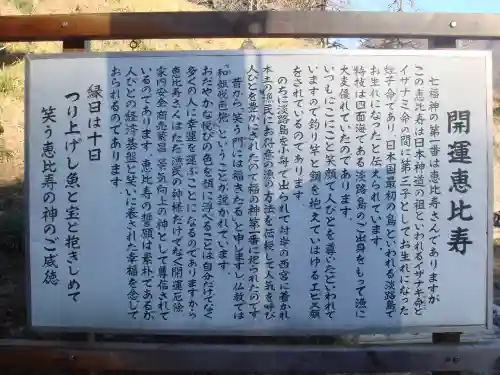 開運恵比寿
七福神の第一番は恵比寿さんでありますが
この恵比寿は日本神道の祖といわれるイザナギ命と
イザナミ命の間に第三子としてお生れになった
蛭子命であり、日本国最初の島といわれる淡路島で
お生れになったと伝えられています。
特技は四面海である淡路島のご出身をもって漁に
大変優れていたのであります。
いつもにこにこと笑顔で人びとを導いたといわれて
いますので釣り竿と鯛を抱えていわゆるエビス顔
をされているのであります。
のちに淡路島を小舟で出られて対岸の西宮に着かれ
本土の漁民にお得意の漁の方法を伝授して人気を呼び
人びとを豊かにされたので福の神第一番に祀られたのです
昔から「笑う門には福きたる」と申しますし仏教では
「和顔悦色施」ということが説かれています。
おだやかな悦びの色を顔に浮べることは自分だけでなく
多くの人に幸運を運ぶことになるのでありますから
恵比寿さんはただ漁民の神様だけでなく開運厄除
家内安全商売繁昌 景気向上の神として尊信されて
いるのであります 恵比寿の誓願は素朴であるが
人びとの経済基盤と笑いに表された幸福を念じて
おられるのであります
縁日は十日
つり上げし魚と宝と抱きしめて
笑う恵比寿の神のご威徳